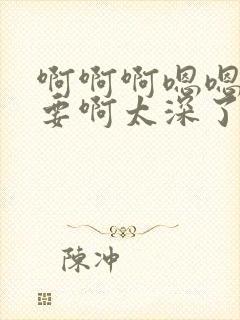 啊啊啊嗯嗯
要啊太深了
陳冲